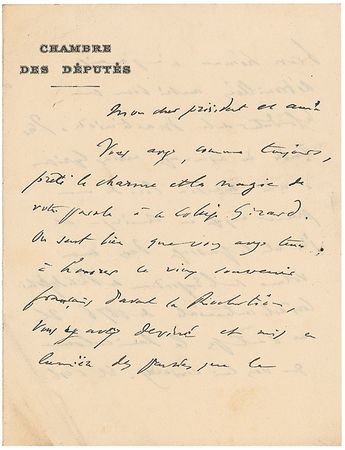 CHAMBRE
DES DÉPUTÉS
Mon cher président et ami
Vous avez, comme toujours,
prêté le charme et la magie de
votre parole à Girard.
On sent bien que vous avez tenu
à honorer le vieux souvenir
français. Devant la Révolution,
Vous y avez deviné et mis en
lumière des pensées que le